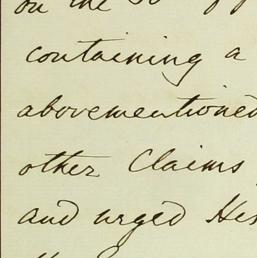 on the
containing a
abovementioned
other Claims
and urged Her